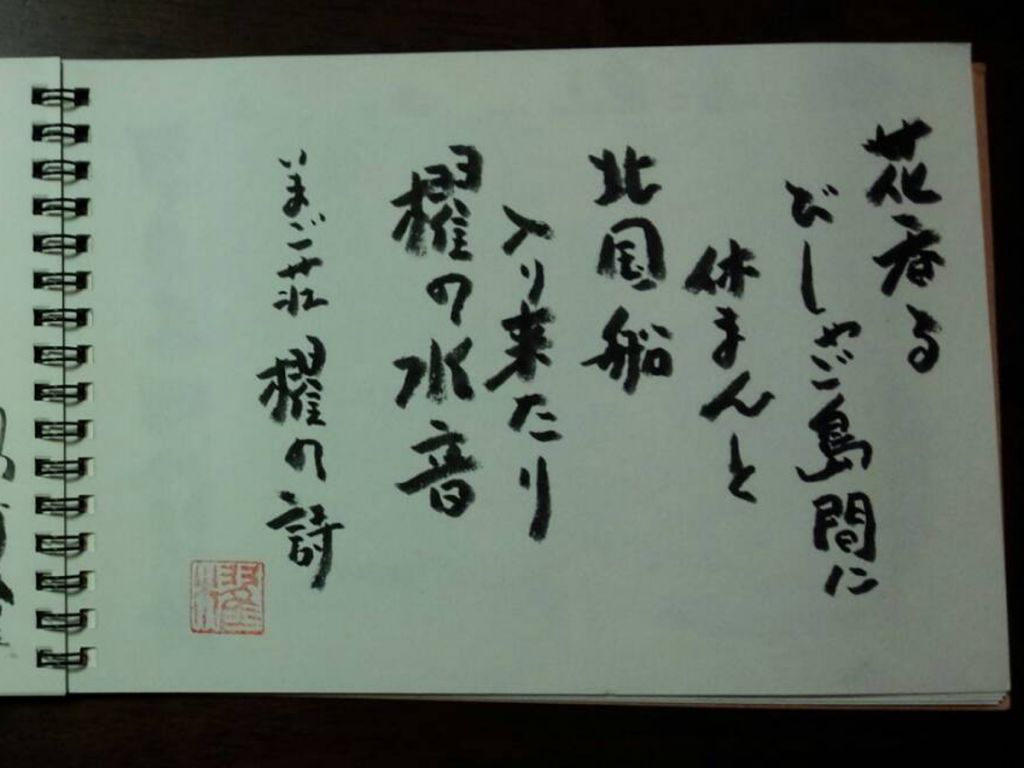 花香る
びしゃご島間に
休まんと
北国船
入り来たり
櫂の水音
いまご荘 櫂の詩
櫂